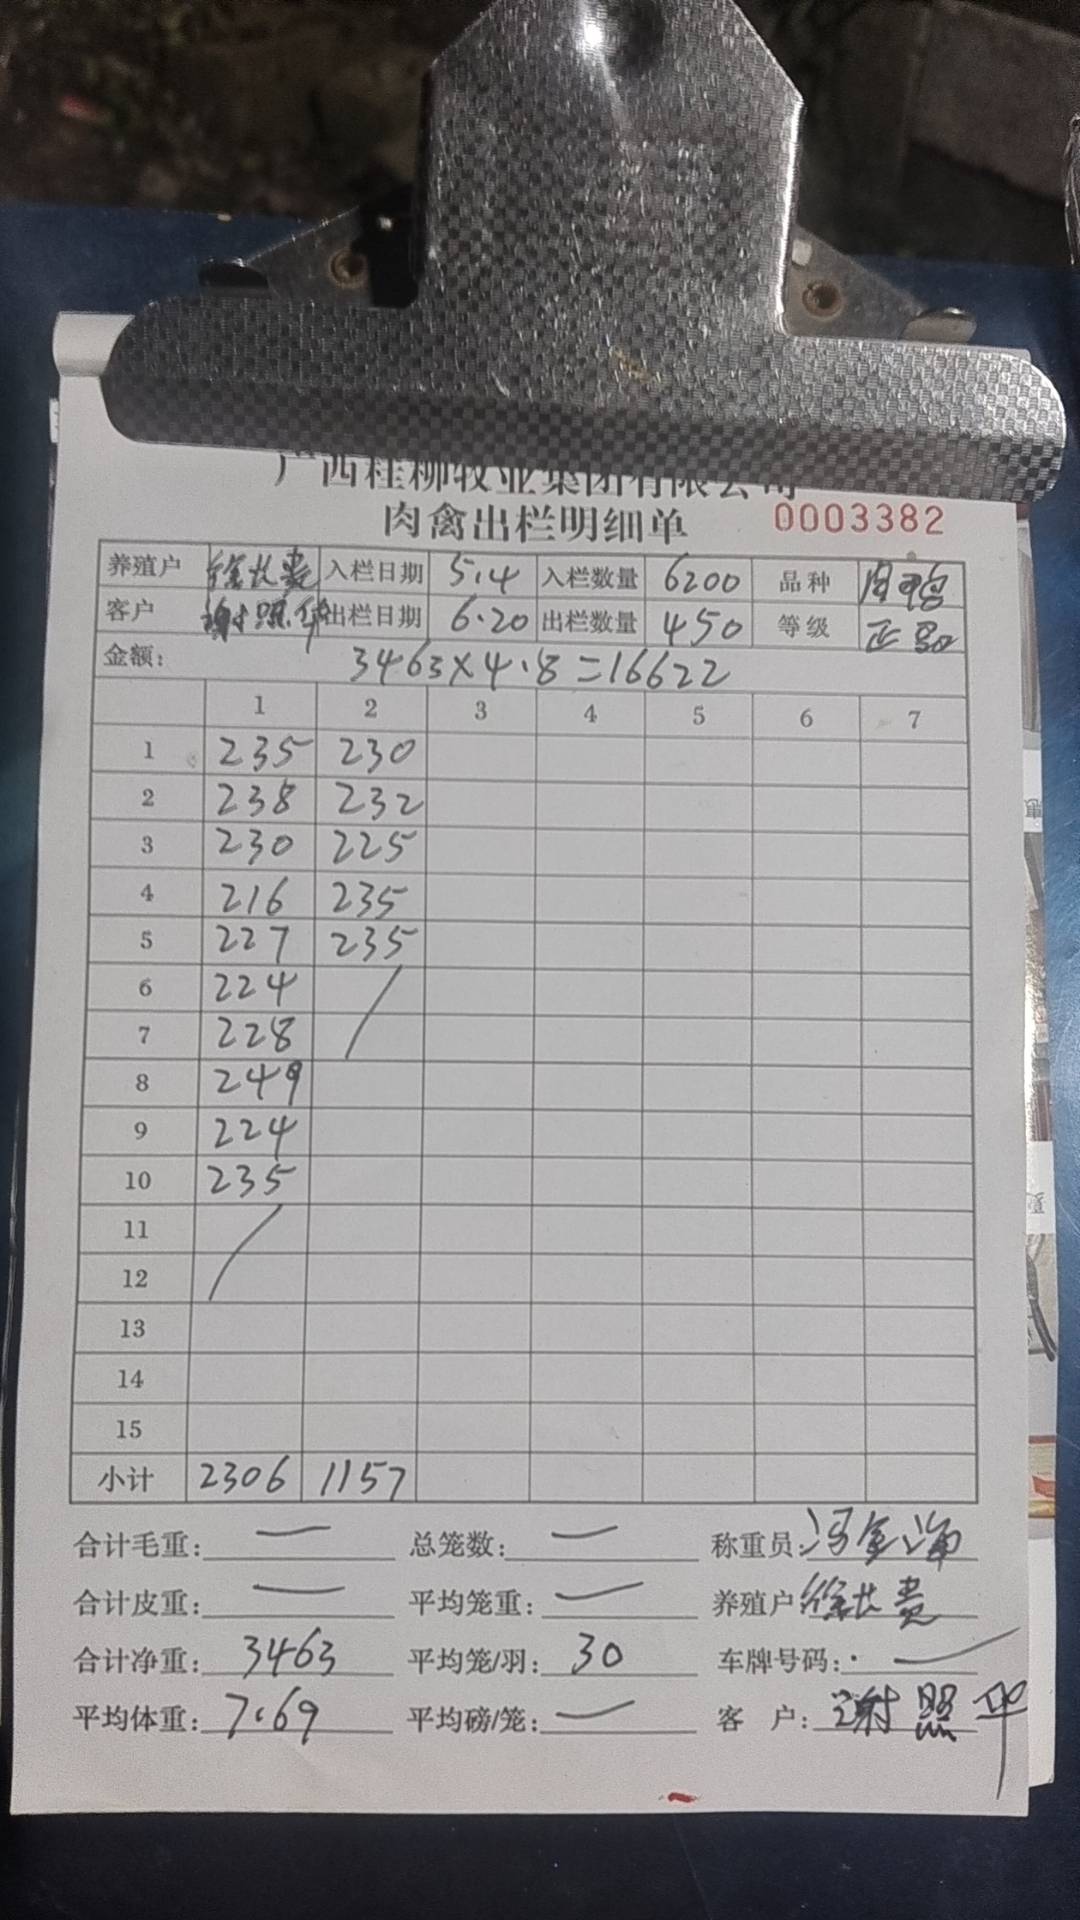 广西桂柳牧业集团有限公司
肉禽出栏明细单 0003382
养殖户 徐长贵 入栏日期 5.4 入栏数量 6200 品种 肉鸭
客户 谢照华 出栏日期 6.20 出栏数量 450 等级 正品
金额: 3463×4.8=16622
1 2 3 4 5 6 7
1 235 230
2 238 232
3 230 225
4 216 235
5 227 235
6 224
7 228
8 249
9 224
10 235
11
12
13
14
15
小计 2306 1157
合计毛重: 一 总笼数: 一 称重员:
合计皮重: 一 平均笼重: 一 养殖户 徐长贵
合计净重: 3463 平均笼/羽: 30 车牌号码: 一
平均体重: 7.69 平均磅/笼: 一 客 户: 谢照华